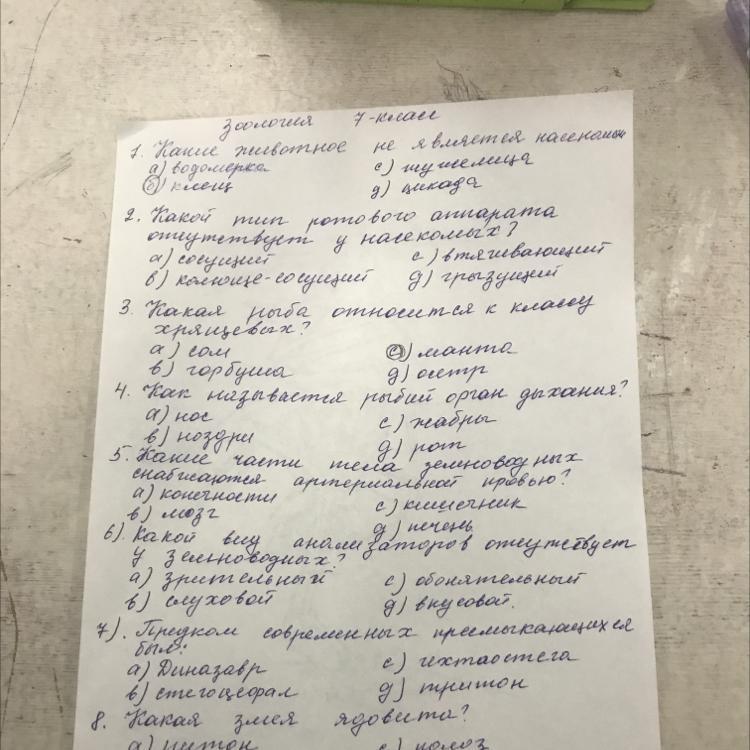 Зоология 7-класс
1. Какие животное не является насекомым
а) водомерка с) жужелица
б) клещ д) цикада
2. Какой тип ротового аппарата
отсутствует у насекомых?
а) сосущий с) втягивающий
в) колюще-сосущий д) грызущий
3. Какая рыба относится к классу
хрящевых?
а) сом с) манта
в) горбуша д) осетр
4. Как называется рыбий орган дыхания?
а) нос с) жабры
в) ноздри д) рот
5. Какие части тела земноводных
снабжаются артериальной кровью?
а) конечности с) кишечник
в) мозг д) печень
6). Какой вид анализаторов отсутствует
у земноводных?
а) зрительный с) обонятельный
в) слуховой д) вкусовой.
7). Предком современных пресмыкающихся
был:
а) Диназавр с) ихтаостега
в) стегоцефал д) тритон
8. Какая змея ядовита?
а) питон с) полоз